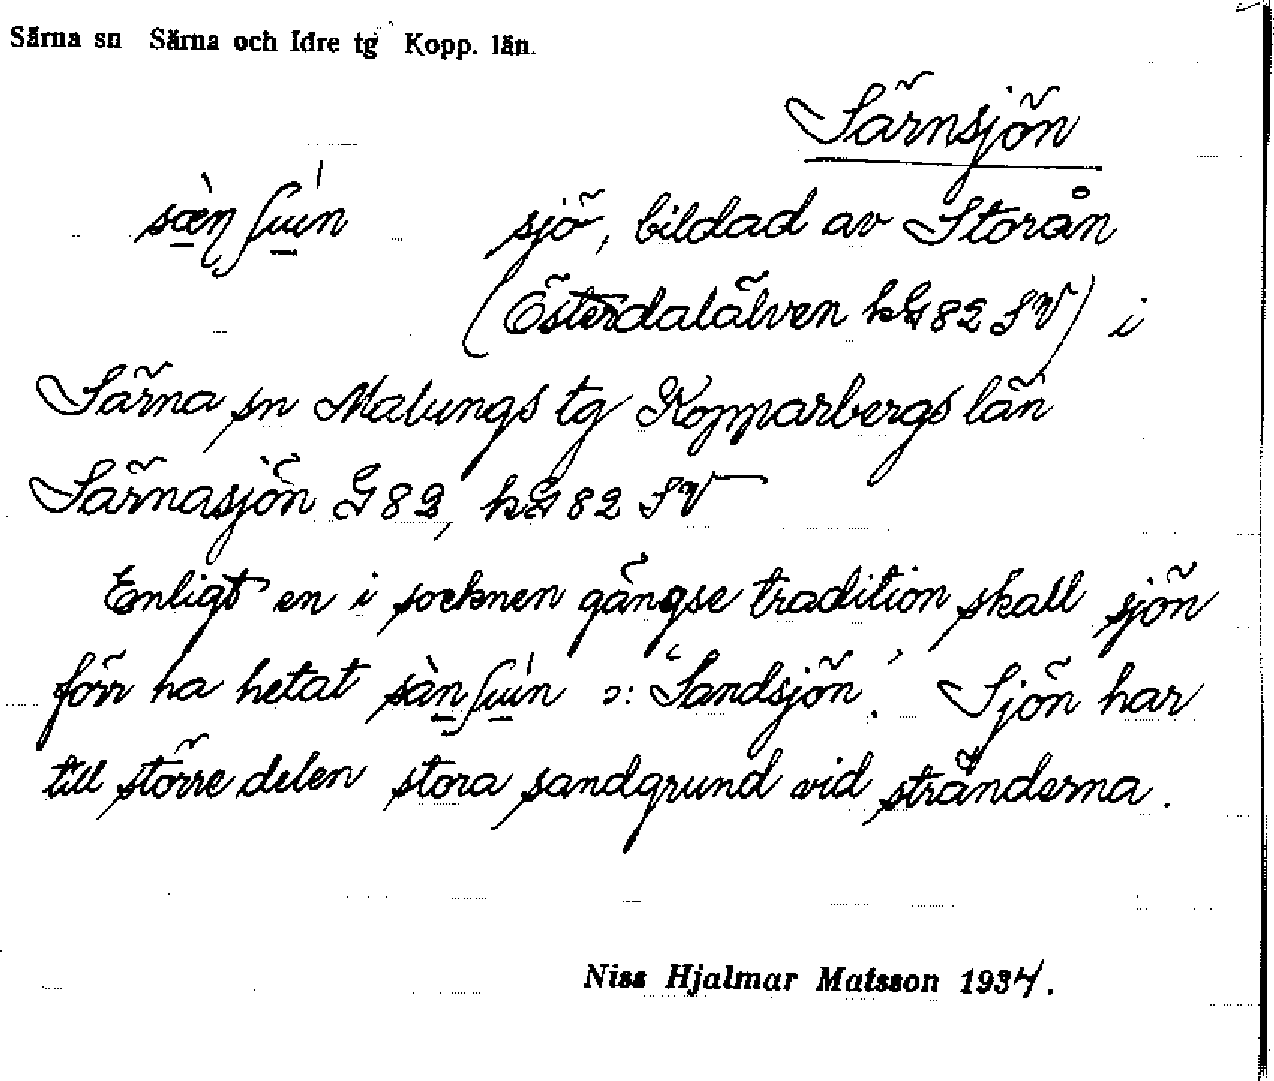 Särna sn Särna och Idre tg Kopp. län.
Särnsjön
sjö, bildad av Storån
(Österdalälven hG 82 SV) i
Särna sn Malungs tg Kopparbergs län
Särnasjön G 82, hG 82 SV
Enligt en i socknen gängse tradition skall sjön
förr ha hetat ɔ: "Sandsjön". Sjön har
till större delen stora sandgrund vid stränderna.
Niss Hjalmar Matsson 1934.